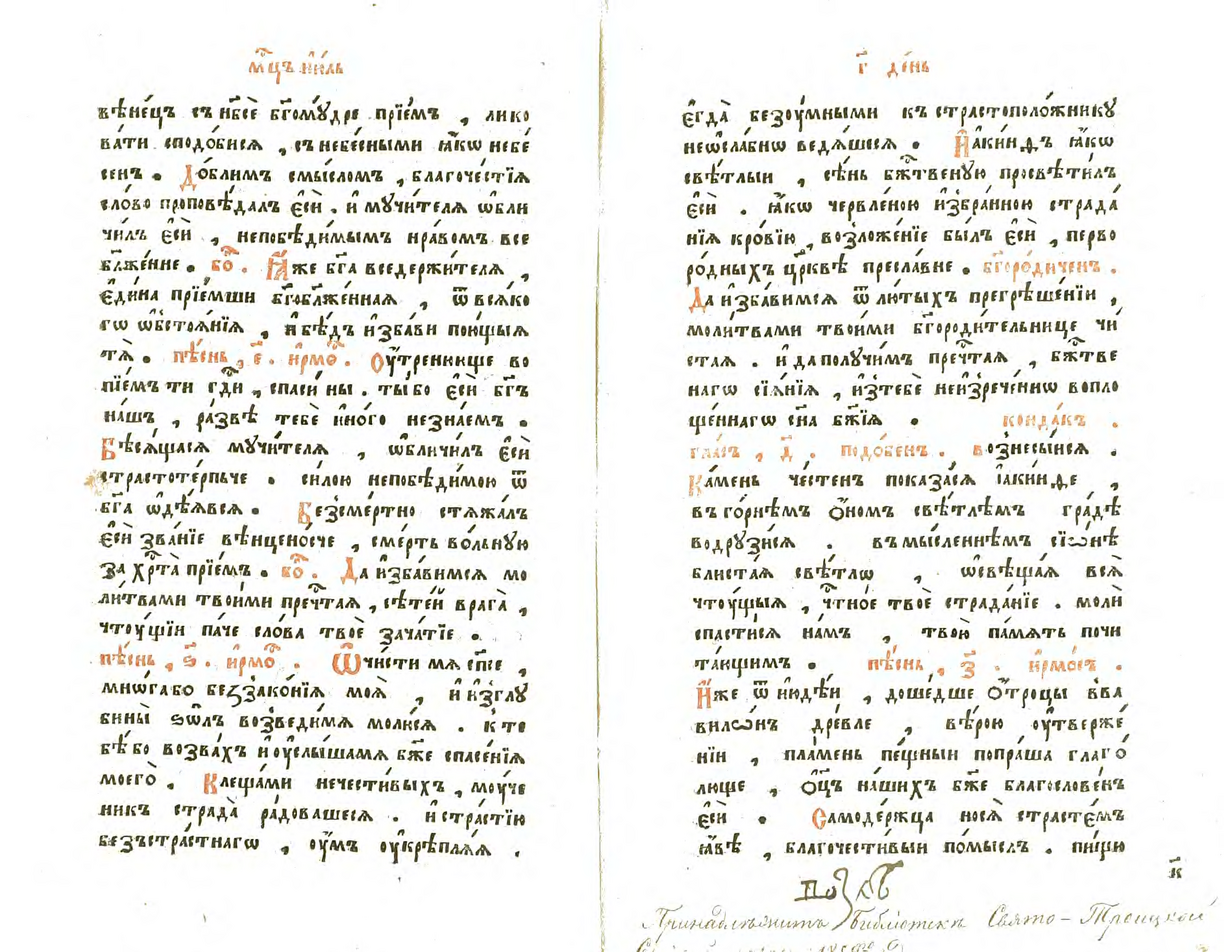 мⷭ҇цъ и҆ю́ль
вѣне́цъ съ нб҃сѐ бг҃ому́дре прїе́мъ , лико
вати сподо́бися , съ небе́сными ꙗ҆́кѡ небе
сенъ . До́блимъ смы́сломъ , благоче́стїѧ
сло́во проповѣ́далъ є҆сѝ . и҆ мꙋчи́телѧ ѡ҆бли
чи́лъ є҆сѝ , непобѣди́мымъ нра́вомъ все
бл҃же́нне . бо҇ . Ꙗ҆́же бг҃а вседержи́телѧ ,
є҆ди́на прїе́мши бг҃обл҃же́ннаѧ , ѿ всѧ́ко
гѡ ѡ҆бстоѧ́нїѧ , и҆ бѣ́дъ и҆зба́ви пою́щыѧ
тѧ̀ . пѣ́снь , є҃ . і҆рмо́ . Оу҆́тренююще во
пїе́мъ ти гдⷭ҇и , спаси́ ны . ты́ бо є҆сѝ бг҃ъ
на́шъ , ра́звѣ тебѐ и҆но́го незна́емъ .
Бѣсѧ́щасѧ мꙋчи́телѧ , ѡ҆бличи́лъ є҆сѝ
страстоте́рпьче . си́лою непобѣди́мою ѿ
бг҃а ѡ҆дѣ́ѧвсѧ . Безсме́ртно стѧжа́лъ
є҆сѝ зва́нїе вѣнцено́сче , сме́рть во́льнꙋю
за хрⷭ҇та̀ прїе́мъ . бо҇ . Да и҆зба́вимсѧ мо
ли́твами твои́ми пречⷭ҇таѧ , сѣте́й врага̀ ,
чтꙋ́щїи па́че сло́ва твоѐ зача́тїе .
пѣ́снь , ѕ҃ . і҆рмо́ . Ѿчи́сти мѧ сп҃се ,
мнѡ́га бо беззако́нїѧ моѧ̀ , и҆ и҆зглꙋ
бины̀ ѕѡ́лъ возведи́ мѧ молю́сѧ . к те
бѣ́ бо возва́хъ и҆ оу҆слы́ша мѧ бж҃е спасе́нїѧ
моегѡ̀ . Клеща́ми нечести́выхъ , мꙋ́че
никъ страда̀ ра́довашесѧ . и҆ стра́стїю
безъстра́стнагѡ , оу҆́мъ оу҆крѣплѧ́ѧ .
г҃ де́нь
є҆гда̀ безꙋ́мными къ страстополо́жникꙋ
неѡ҆сла́бнѡ ведѧ́шесѧ . І҆аки́нѳъ ꙗ҆́кѡ
свѣ́тлыи , сѣ́нь бжⷭ҇твенꙋю просвѣти́лъ
є҆сѝ . ꙗ҆́кѡ червле́ною и҆збра́нною страда́
нїѧ кро́вїю , возложе́нїе бы́лъ є҆сѝ , перво
ро́дныхъ цр҃квѣ пресла́вне . бг҃оро́диченъ .
Да и҆зба́вимсѧ ѿ лю́тыхъ прегрѣше́нїи ,
моли́твами твои́ми бг҃ороди́тельнице чи́
стаѧ . и҆ да полꙋчи́мъ пречⷭ҇таѧ , бжⷭ҇тве
нагѡ сїѧ́нїѧ , и҆зтебѐ неизрече́ннѡ вопло
ще́ннагѡ сн҃а бж҃їѧ . конда́къ .
гла́съ , д҃ . подо́бенъ . вознесы́исѧ .
Ка́мень че́стенъ показа́сѧ і҆аки́нѳе ,
въ го́рнѣмъ ѻ҆́номъ свѣ́тлѣмъ гра́дѣ
водрꙋзи́сѧ . въ мы́сленнѣмъ сїѡ́нѣ
блиста́ѧ свѣ́тлѡ , ѡ҆свѣща́ѧ всѧ̀
чтꙋ́щыѧ , чⷭ҇тно́е твоѐ страда́нїе . молѝ
спасти́сѧ на́мъ , твою̀ па́мѧть почи
та́ющимъ . пѣ́снь , з҃ . і҆рмо́съ .
И҆̀же ѿ і҆юде́и , доше́дше ѻ҆́троцы в ва
вилѡ́нъ дре́вле , вѣ́рою оу҆тверже́
нїи , пла́мень пе́щныи попра́ша глаго́
люще , ѻ҆ц҃ъ на́шихъ бж҃е благослове́нъ
є҆сѝ . Самоде́ржца носѧ̀ страсте́мъ
ꙗ҆́вѣ , благочести́выи по́мыслъ . пи́щю
к҃
Принадлежитъ Библіотекѣ Свято-Троицкой